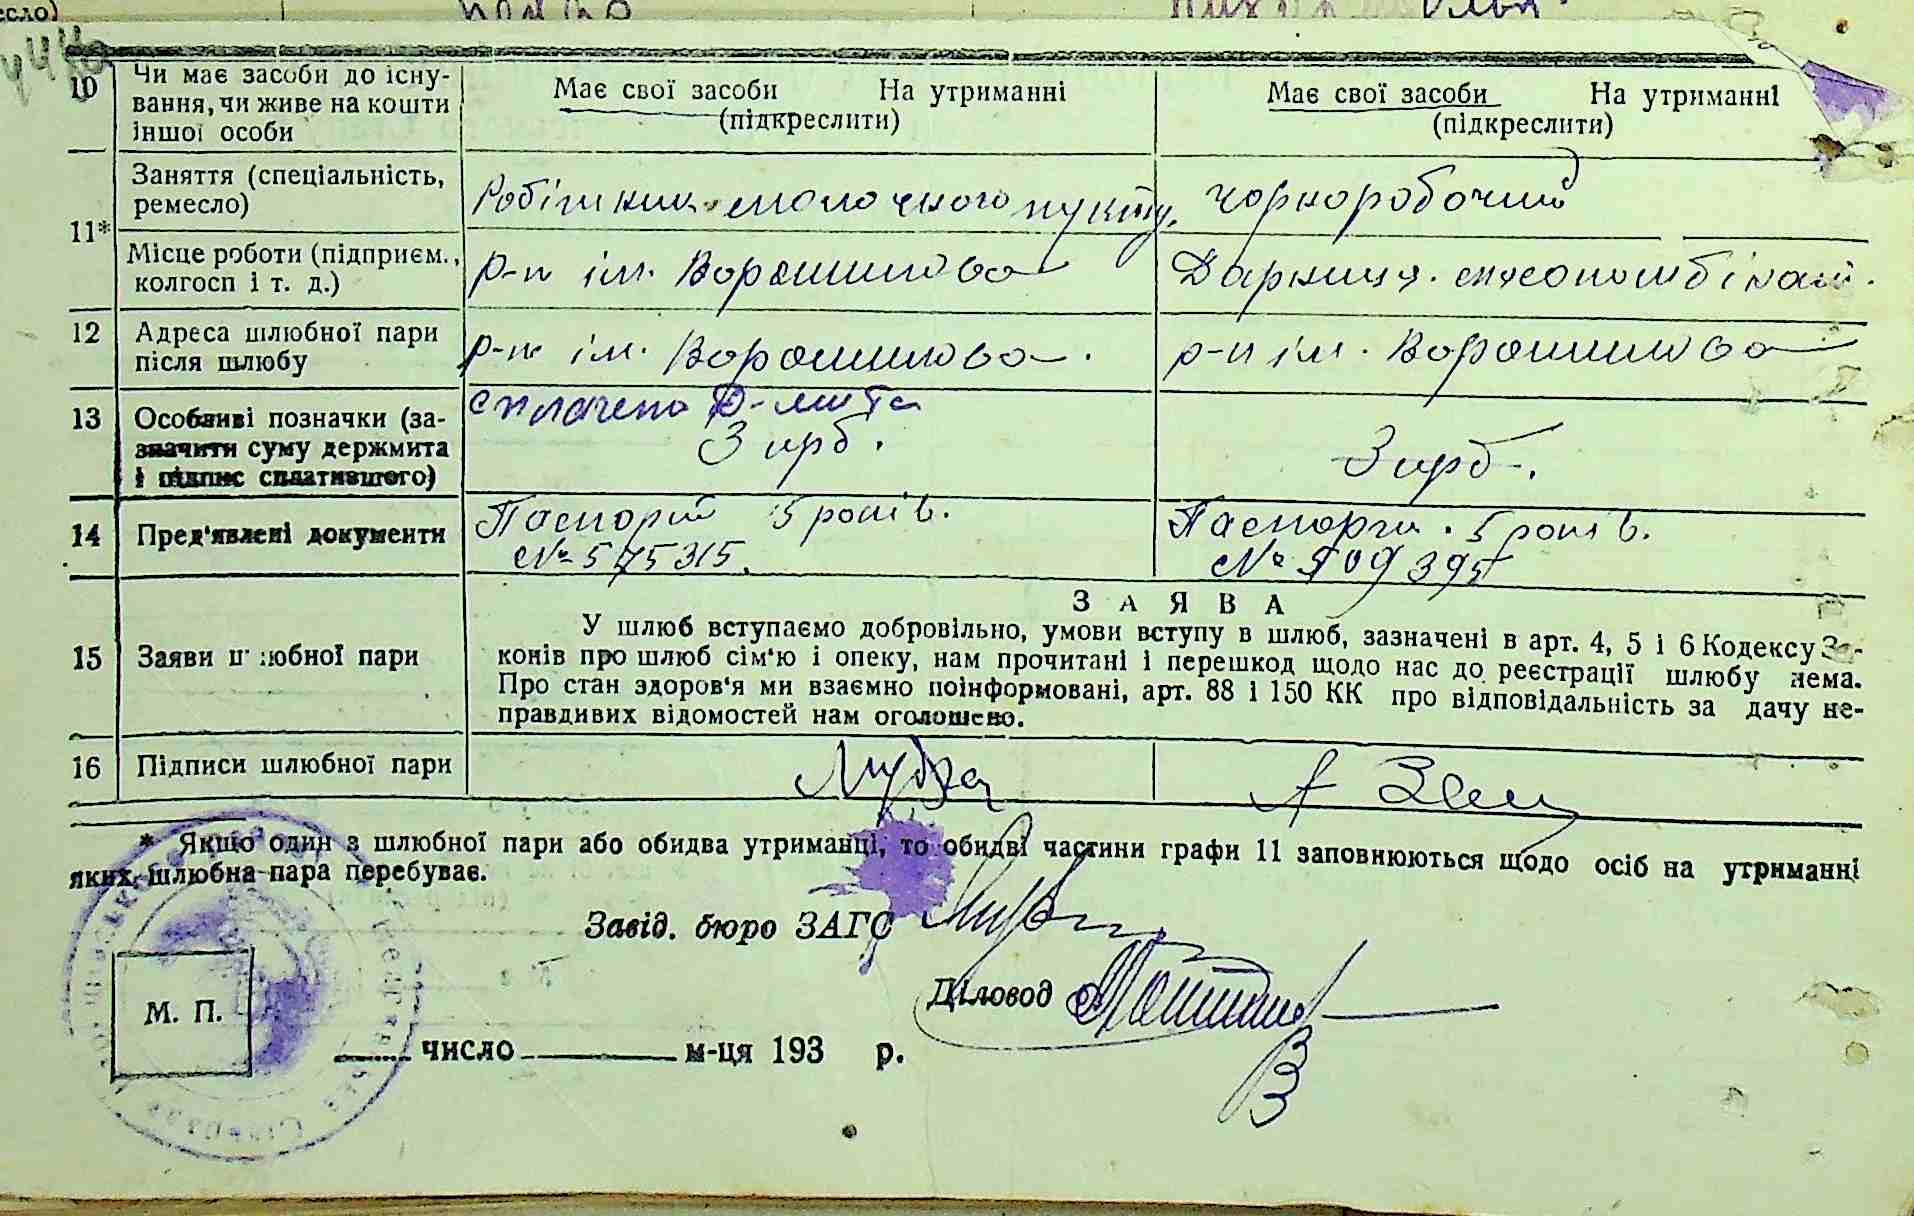 10 Чи має засоби до існу-
вання, чи живе на кошти
іншої особи
Має свої засоби На утриманні
(підкреслити)
Має свої засоби На утриманні
(підкреслити)
11* Заняття (спеціальність,
ремесло)
Робітник молочного пункту.
чорноробочий
Місце роботи (підприєм.,
колгосп і т. д.)
р-н ім. Ворошилова
Дарниця.
12 Адреса шлюбної пари
після шлюбу
р-н ім. Ворошилова.
р-н ім. Ворошилова
13 Особливі позначки (за-
значити суму держмита
і підпис сплатившого)
сплачено Д-мита
3 крб.
3 крб.
14 Пред'явлені документи
Паспорт 5 років.
№ 575315.
Паспорт. 5 років.
№ 509395
15 Заяви шлюбної пари
ЗАЯВА
У шлюб вступаємо добровільно, умови вступу в шлюб, зазначені в арт. 4, 5 і 6 Кодексу За-
конів про шлюб сім'ю і опеку, нам прочитані і перешкод щодо нас до реєстрації шлюбу нема.
Про стан здоров'я ми взаємно поінформовані, арт. 88 і 150 КК про відповідальність за дачу не-
правдивих відомостей нам оголошено.
16 Підписи шлюбної пари
* Якщо один з шлюбної пари або обидва утриманці, то обидві частини графи 11 заповнюються щодо осіб на утриманні
яких шлюбна пара перебуває.
Завід. бюро ЗАГС
Діловод
М. П.
число м-ця 193 р.